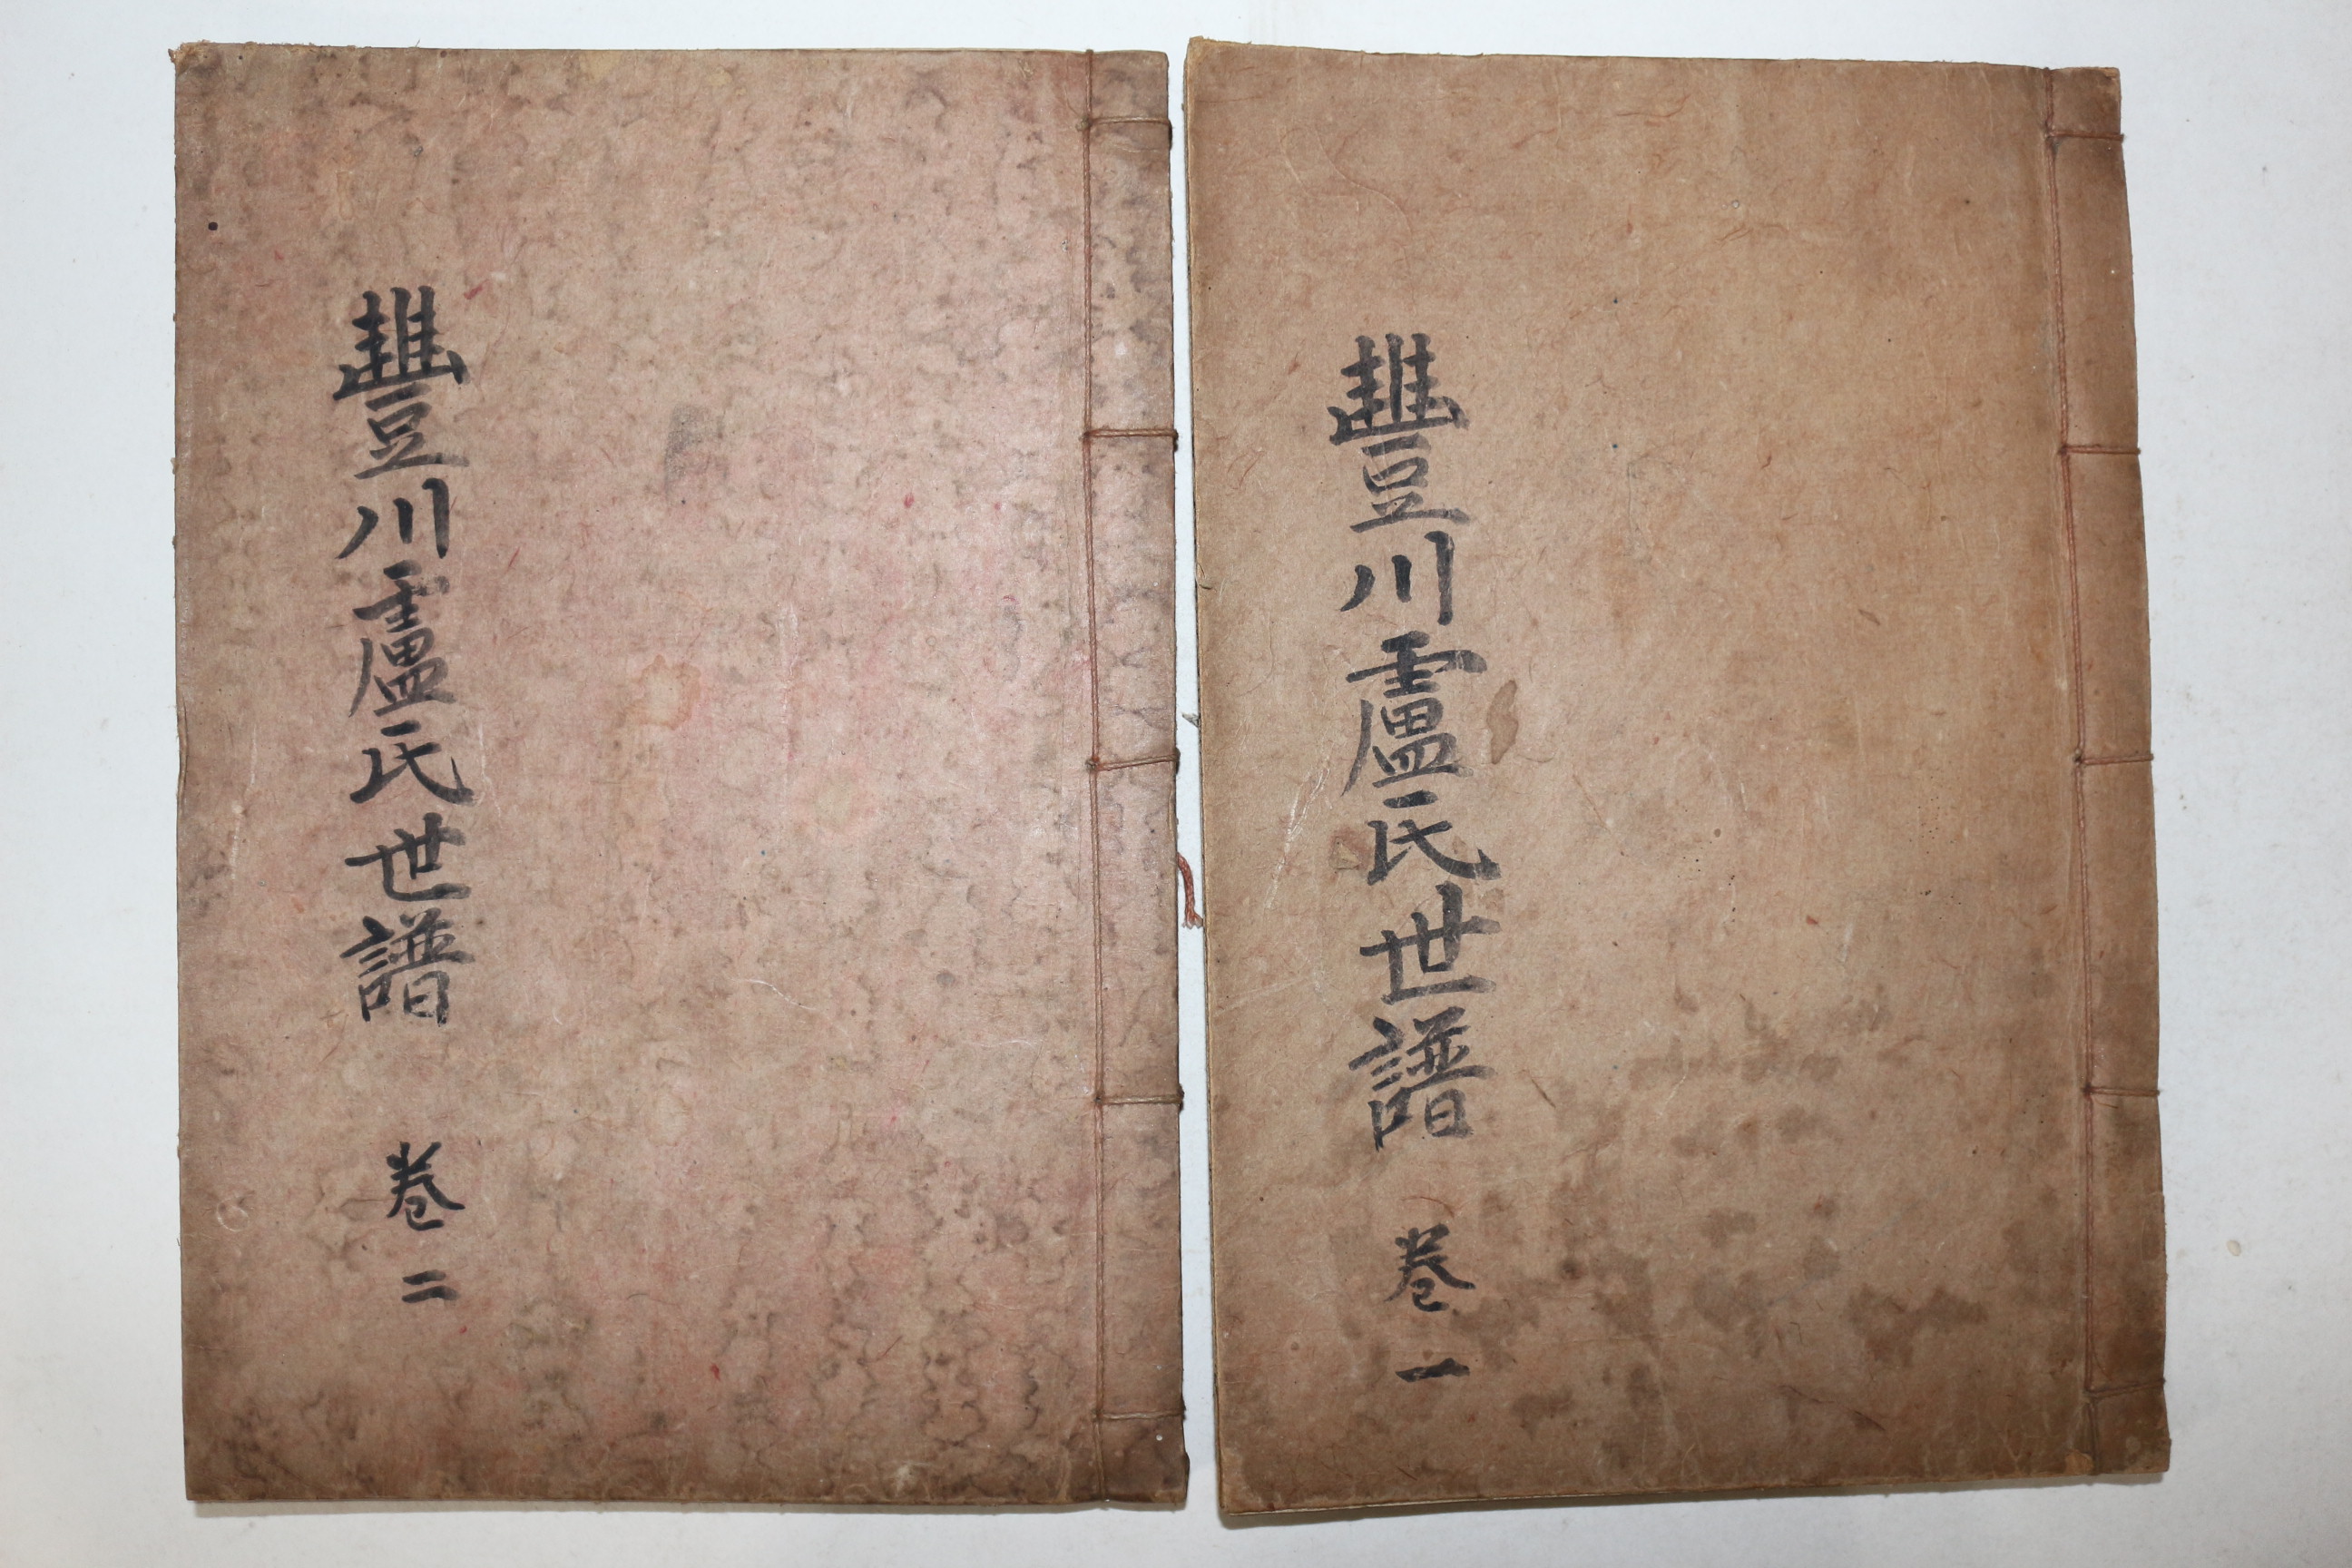 豐川盧氏世譜 卷一
豐川盧氏世譜 卷二